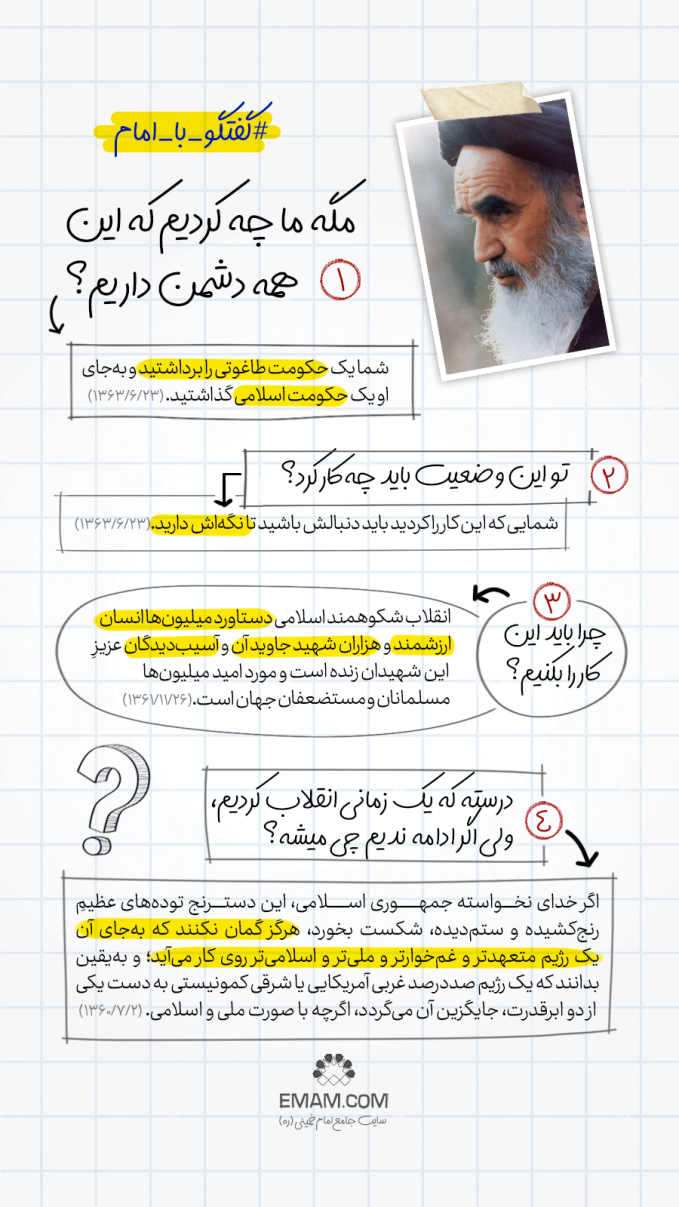 #گفتگو_با_امام
مگه ما چه کردیم که این
همه دشمن داریم؟
۱
شما یک حکومت طاغوتی را برداشتید و به‌جای
او یک حکومت اسلامی گذاشتید. (۱۳۶۳/۶/۲۳)
۲
تو این وضعیت باید چه کار کرد؟
شمایی که این کار را کردید باید دنبالش باشید تا نگه‌اش دارید.(۱۳۶۳/۶/۲۳)
۳
چرا باید این
کار را بکنیم؟
انقلاب شکوهمند اسلامی دستاورد میلیون‌ها انسان
ارزشمند و هزاران شهید جاوید آن و آسیب‌دیدگان عزیزِ
این شهیدان زنده است و مورد امید میلیون‌ها
مسلمانان و مستضعفان جهان است.(۱۳۶۱/۱۱/۲۶)
۴
درسته که یک زمانی انقلاب کردیم،
ولی اگر ادامه ندیم چی میشه؟
اگر خدای نخـواسته جمهـــوری اســـلامی، این دستــرنج توده‌های عظیمِ
رنج‌کشیده و ستم‌دیده، شکست بخورد، هرگز گمان نکنند که به‌جای آن
یک رژیم متعهدتر و غم‌خوارتر و ملی‌تر و اسلامی‌تر روی کار می‌آید؛ و به‌یقین
بدانند که یک رژیم صددرصد غربی آمریکایی یا شرقی کمونیستی به دست یکی
از دو ابرقدرت، جایگزین آن می‌گردد، اگرچه با صورت ملی و اسلامی. (۱۳۶۰/۷/۲)
EMAM.COM
سایت جامع امام خمینی (ره)